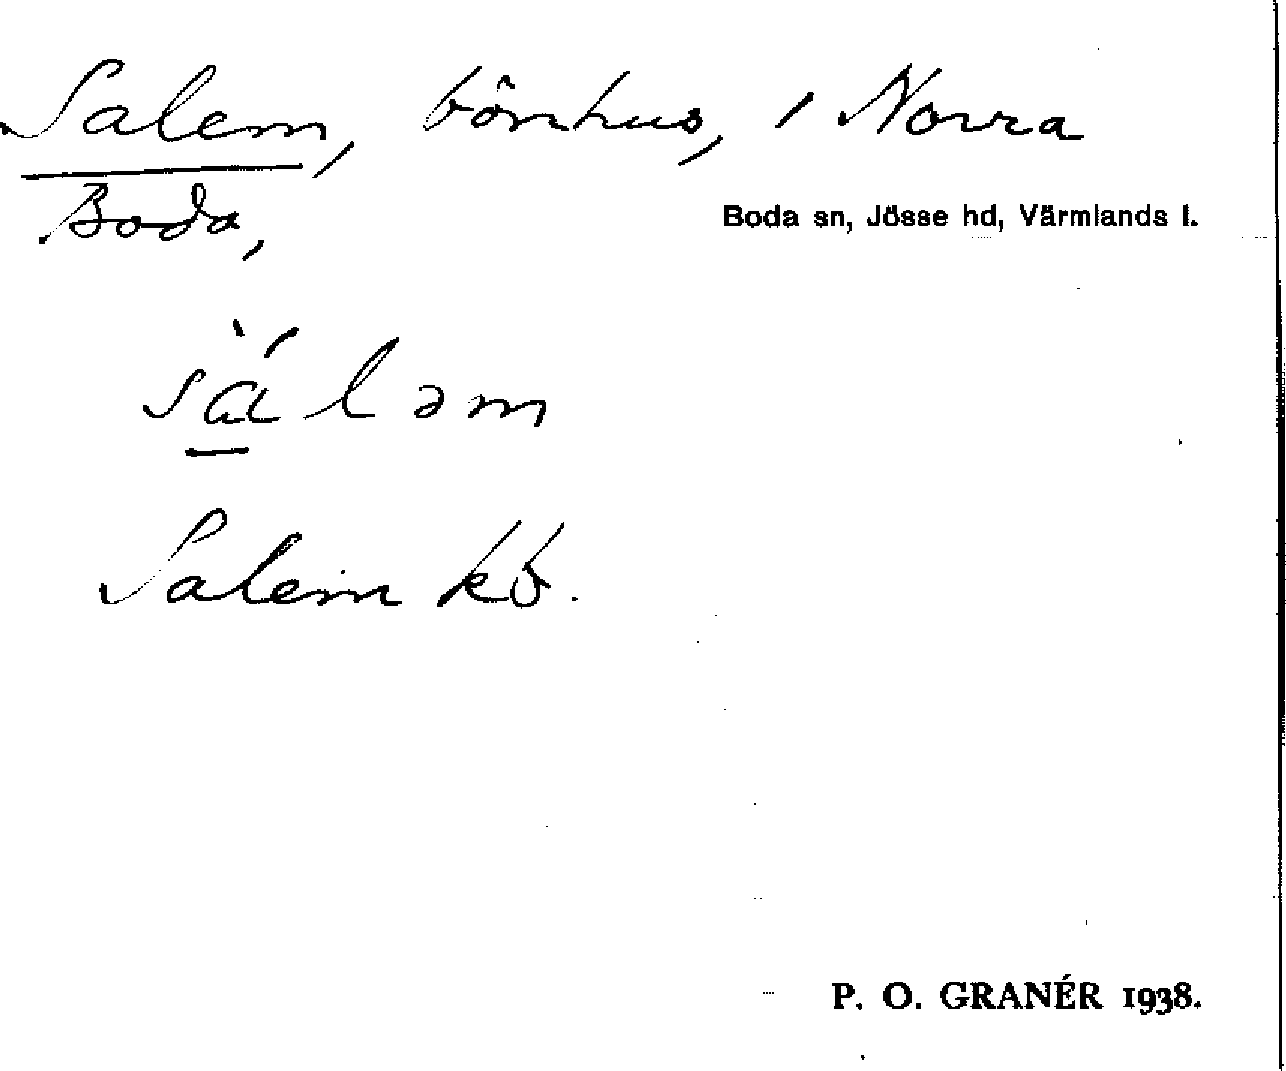 Salem, bönhus, i Norra
Boda,
Boda sn, Jösse hd, Värmlands l.
sàləm
Salem kb.
P. O. GRANÉR 1938.